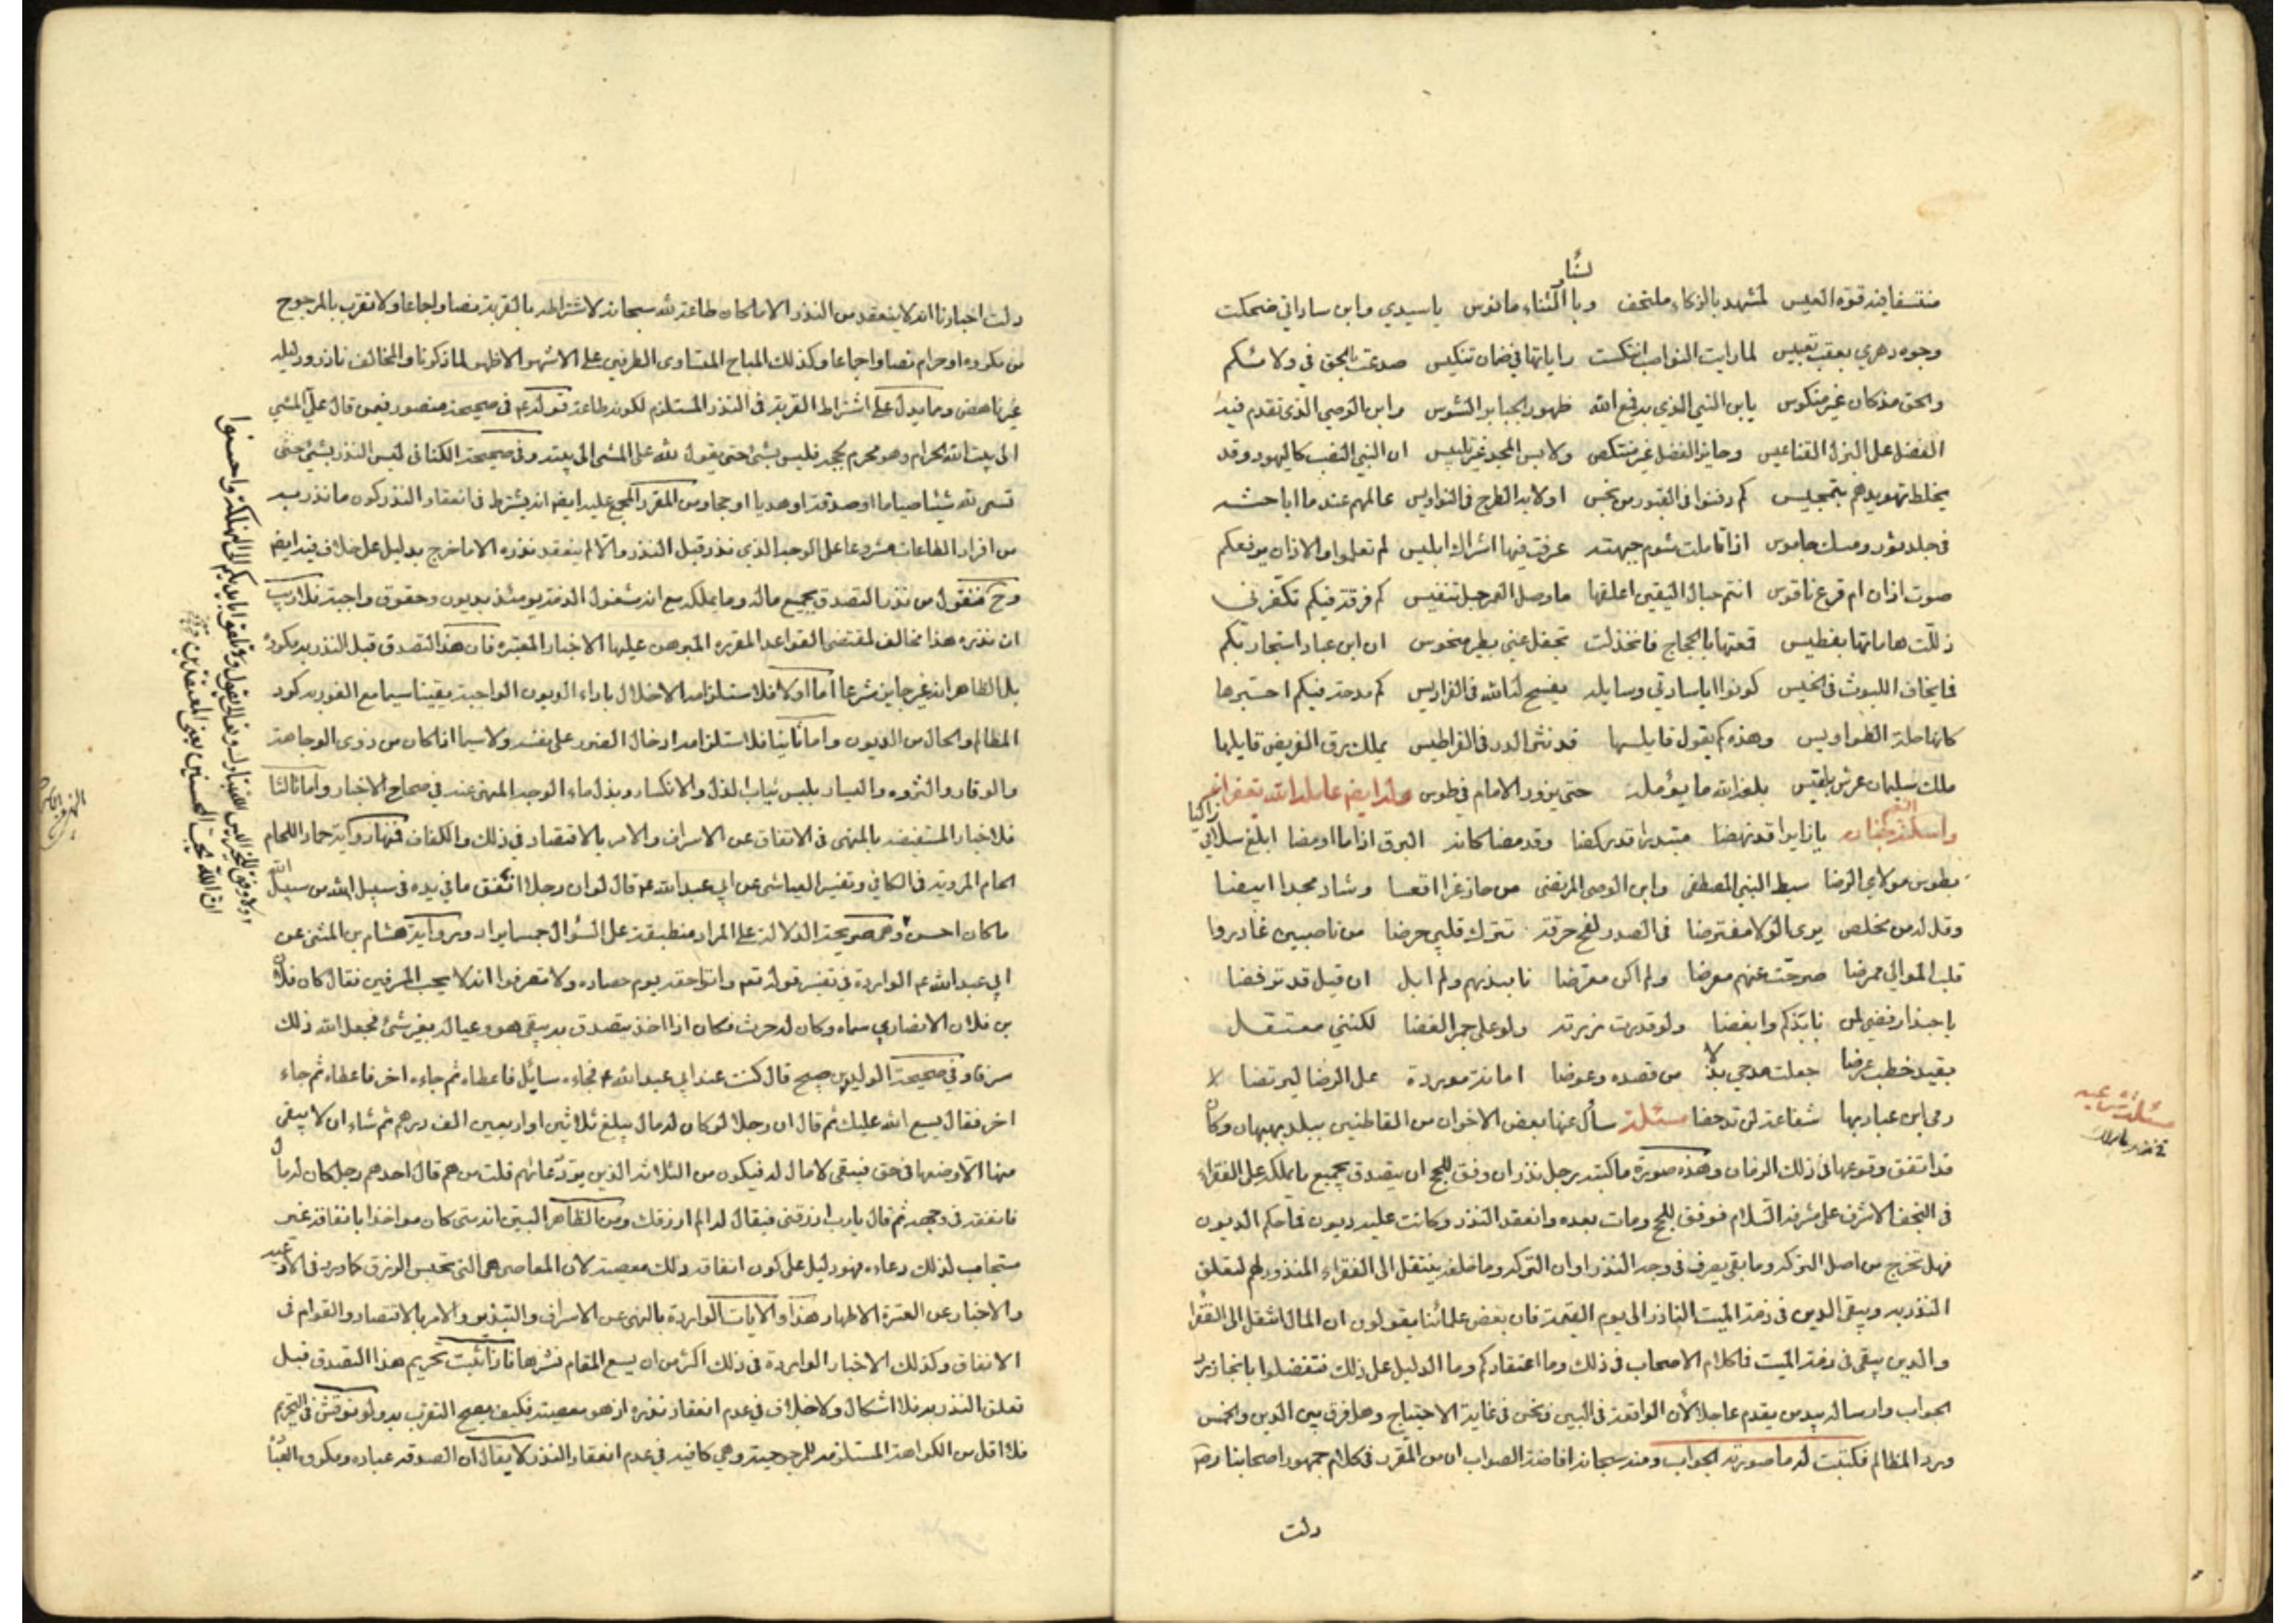 لسنا
منتسفا فيه قوة العيس لمشهد بالزكاء ملتحف وبالثناء مانوس ياسيدي وابن ساداتي ضحكت
وجوه دهري بعقب تعبيس لما رايت النواصب انتكست راياتها في ضمان تنكيس صدعت بالحق في ولائكم
والحق مذكان غير منكوس يابن النبي الذي به قمع الله ظهور الجبابر الشوس وابن الوصي الذي تقدم فيه
الفضل على البزل القناعيس وحايز الفضل غير منتكص ولابس المجد غير تلبيس ان النبي النصب كاليهود وقد
يخلط تهويدهم بتمجيس كم دفنوا في القبور من نجس اولا به الطرح في النواويس عالمهم عند ما اباحثه
في جلد ثور ومسك جاموس اذا تاملت شوم جبهته عرفت فيها اشراك ابليس لم تعلموا والاذان يرفعكم
صوت اذان ام قرع ناقوس انتم حبال اليقين اعلقها ما وصل العمر حبل تنفيس كم فرقة فيكم تكفرني
ذللت هاماتها بفطيس قمعتها بالحجاج فانخذلت تجفل عني بطير منحوس ان ابن عباد استجار بكم
فما يخاف الليوث في الخيس كونوا ايا سادتي وسايله يفسح له الله في الفراديس كم مدحة فيكم احتبرها
كانها حلة الطواويس وهذه كم يقول قايلها قد نثر الدر في القراطيس يملك رق القريض قايلها
ملك سليمان عرش بلقيس بلغه الله ما يؤمله حتى يزور الامام في طوس وله ايضا عامله الله بغفرانه
واسكنه جنانه يا زايرا قد نهضا مبتدرا قد ركضا وقد مضا كانه البرق اذا ما اومضا ابلغ سلامي زاكيا
بطوس مولاي الرضا سبط النبي المصطفى وابن الوصي المرتضى من حاز عزا اقعسا وشاد مجدا ابيضا
وقل له من مخلص يرى الولا مفترضا في الصدر لفح حرقة تترك قلبي حرضا من ناصبين غادروا
قلب الموالي ممرضا صرحت عنهم معرضا ولم اكن معرضا نابذتهم ولم ابل ان قيل قد ترفضا
يا حبذا رفضي لمن نابذكم وابغضا ولو قدرت زرته ولو على جمر الغضا لكنني معتقل
بقيد خطب عرضا جعلت مدحي بدلا من قصده وعوضا امانة موردة على الرضا ليرتضا
رمى ابن عباد بها شفاعة لن تدحضا مسئلة سأل عنها بعض الاخوان من القاطنين ببلد بهبهان وكان
قد اتفق وقوعها في ذلك الزمان وهذه صورة ما كتبه رجل نذر ان وفق للحج ان يتصدق بجميع ما يملكه على الفقراء
في النجف الاشرف على مشرفه السلام فوفق للحج ومات بعده وانعقد النذر وكانت عليه ديون فما حكم الديون
فهل تخرج من اصل التركة وما بقي يصرف في وجه النذر او ان التركة وما خلفه ينتقل الى الفقراء المنذور لهم لتعلق
النذر به ويبقى الدين في ذمة الميت الناذر الى يوم القيمة فان بعض علمائنا يقولون ان المال انتقل الى الفقراء
والدين يبقى في ذمة الميت فما كلام الاصحاب في ذلك وما اعتقادكم وما الدليل على ذلك فتفضلوا بانجاز
الجواب وارساله بيد من يقدم عاجلا لأن الواقعة في البين ونحن في غاية الاحتياج وهل فرق بين الدين والخمس
ورد المظالم فكتبت له ما صورته الجواب ومنه سبحانه افاضة الصواب ان من المقرر في كلام جمهور اصحابنا رضه
دلت
مسئلة
دلت اخبارنا انه لا ينعقد من النذر الا ما كان طاعة لله سبحانه لاشتراطه بالقربة نصا واجماعا ولا تقرب بالمرجوح
من مكروه او حرام نصا واجماعا وكذلك المباح المتساوى الطرفين على الاشهر الاظهر لما ذكرنا والمخالف نادر ودليله
غير ناهض ومما يدل على اشتراط القربة في النذر المستلزم لكونه طاعة قوله ع في صحيحة منصور فيمن قال علي المشي
الى بيت الله الحرام وهو محرم بحجة فليس بشئ حتى يقول لله على المشى الى بيته وفي صحيحة الكناني ليس النذر بشئ حتى
تسمى لله شيئا صياما او صدقة او هديا او حجا ومن المقرر المجمع عليه ايضا انه يشترط في انعقاد النذر كون ما نذر به
من افراد الطاعات مشروعا على الوجه الذي نذر قبل النذر والا لم ينعقد نذره الا ما خرج بدليل على خلاف فيه ايضا
وح فنقول من نذر التصدق بجميع ماله وما يملكه مع انه مشغول الذمة يومئذ بديون وحقوق واجبة فلا ريب
ان نذره هذا مخالف لمقتضى القواعد المقررة المبرهن عليها الاخبار المعتبره فان هذا التصدق قبل النذر به مكروه
بل الظاهر انه غير جايز شرعا اما اولا فلاستلزامه الاخلال باداء الديون الواجبة يقينا سيما مع الفور به كرد
المظالم والحال من الديون واما ثانيا فلاستلزامه ادخال الضرر على نفسه ولا سيما اذا كان من ذوى الوجاهة
والوقار والثروه واليسار بلبس ثياب الذل والانكسار وبذل ماء الوجه المنهى عنه في صحاح الاخبار واما ثالثا
فللاخبار المستفيضه بالنهى في الانفاق عن الاسراف والامر بالاقتصاد في ذلك والكفاف فمنها رواية حماد اللحام
المروية في الكافي وتفسير العياشى عن ابي عبد الله ع قال لو ان رجلا انفق ما في يده في سبيل من سبيل الله
ما كان احسن ولا وفق للخير اليس الله تبارك وتعالى يقول ولا تلقوا بايديكم الى التهلكة واحسنوا
ان الله يحب المحسنين يعنى المقتصدين
وهي صريحة الدلالة على المراد منطبقة على السؤال حسبا يراد ورواية هشام بن المثنى عن
ابي عبد الله ع الواردة في تفسير قوله تع واتوا حقه يوم حصاده ولا تسرفوا انه لا يحب المسرفين فقال كان فلان
بن فلان الانصاري سماه وكان له حرث فكان اذا اخذ يتصدق به يبقى هو وعياله بغير شئ فجعل الله ذلك
سرفا وفي صحيحة الوليد بن صبيح قال كنت عند ابي عبد الله ع فجاءه سايل فاعطاه ثم جاءه اخر فاعطاه ثم جاء
اخر فقال يسع الله عليك ثم قال ان رجلا لو كان له مال يبلغ ثلاثين او اربعين الف درهم ثم شاء ان لا يبقى
منها الا وضعها في حق فيبقى لا مال له فيكون من الثلاثة الذين يرد دعائهم قلت من هم قال احدهم رجل كان له مال
فانفقه في وجهه ثم قال يارب ارزقني فيقال له الم ارزقك ومن الظاهر البين انه متى كان مواخذا بانفاقه غير
مستجاب لذلك دعاءه فهو دليل على كون انفاقه ذلك معصية لان المعاصي هي التي تحبس الرزق كما ورد في الادعيه
والاخبار عن العترة الاطهار هذا والايات الواردة بالنهى عن الاسراف والتبذير والامر بالاقتصاد والقوام في
الانفاق وكذلك الاخبار الواردة في ذلك اكثر من ان يسع المقام نشرها فاذا ثبت تحريم هذا التصدق قبل
تعلق النذر به فلا اشكال ولا خلاف في عدم انعقاد نذره اذ هو معصية فكيف يصح التقرب به ولو نوقش في التحريم
فلا اقل من الكراهة المستلزمة للمرجوحية وهي كافية في عدم انعقاد النذر لا يقال ان الصدقه عباده ومكروه العبادة